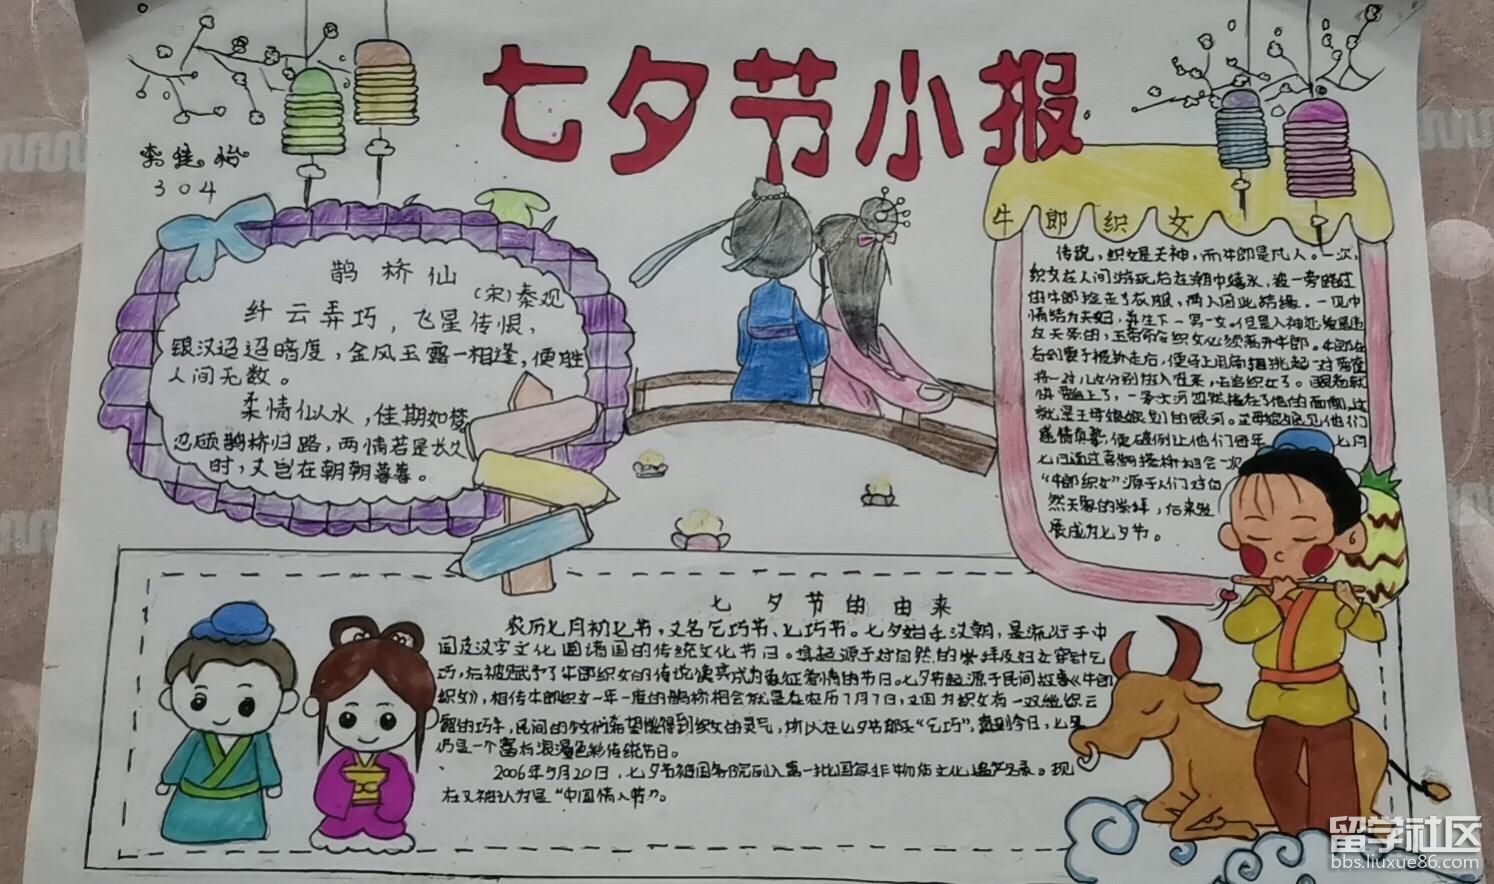 七夕节小报
李佳怡
304
鹊桥仙
(宋)秦观
纤云弄巧，飞星传恨，
银汉迢迢暗度，金风玉露一相逢，便胜
人间无数。
柔情似水，佳期如梦
忍顾鹊桥归路，两情若是长久
时，又岂在朝朝暮暮。
牛郎织女
传说，织女是天神，而牛郎是凡人。一次，
织女在人间游玩后在湖中嬉水，被一旁路过
的牛郎捡走了衣服，两人因此结缘。一见中
情结为夫妇，并生下一男一女。但是人神
左天条的，玉帝命令织女必须离开牛郎。牛郎在
右到妻子被抓走后，便马上用扁担挑起一对箩筐
将一对儿女分别放入筐来，去追织女了。眼看就
快要追上了，一条大河忽然挡在了他的面前，这
就是王母娘娘划的银河。王母娘娘见他们
感情真挚，便破例让他们每年 七月
七日通过喜鹊搭桥相会一次
“牛郎织女”源于人们对自
然天象的崇拜，后来发
展成为七夕节。
七夕节的由来
农历七月初七节，又名乞巧节、七巧节。七夕始于汉朝，是流行于中
国及汉字文化圈诸国的传统文化节日。其起源于对自然的崇拜及妇女穿针乞
巧，后被赋予了牛郎织女的传说使其成为象征爱情的节日。七夕节起源于民间故事《牛郎
织女》，相传牛郎织女一年一度的鹊桥相会就是在农历7月7日，又因为织女有一双能织云
霞的巧手，民间的少女们希望能得到织女的灵气，所以在七夕节那天“乞巧”，直到今日，七夕
仍是一个富有浪漫色彩传统节日。
2006年5月20日，七夕节被国务院列入第一批国家非物质文化遗产名录。现
在又被认为是“中国情人节”。
留学社区
bbs.liuxue86.com